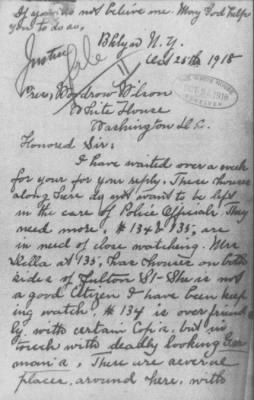 If you do not believe me. May God help
you to do so,
Justice
Bklyn N.Y.
Oct 25th 1918
Pres, Woodrow Wilson
White House
Washington D.C.
Honored Sir:
I have waited over a week
for your for your reply. These houses
along here do not want to be left
in the care of Police Officials. They
need more. # 134 & 135, are
in need of close watching. Mrs
Della at 135, has houses on both
sides of Fulton St - She is not
a good Citizen I have been keep
ing watch. # 134 is over friend
ly. with certain Cops. but in
touch with deadly looking Ger
mania. There are several
places, around here, with